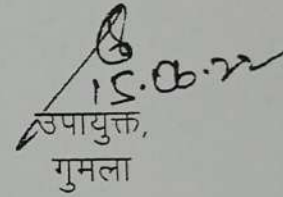 15.06.22
उपायुक्त,
गुमला